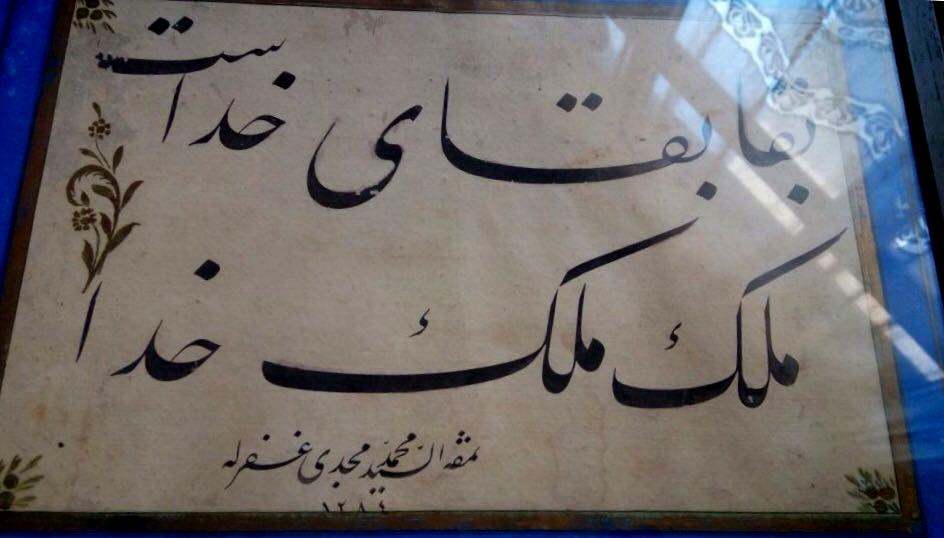 بقا بقای خداست
ملك ملك خدا
نمقه السيد محمد مجدی غفرله
١٢٨٤